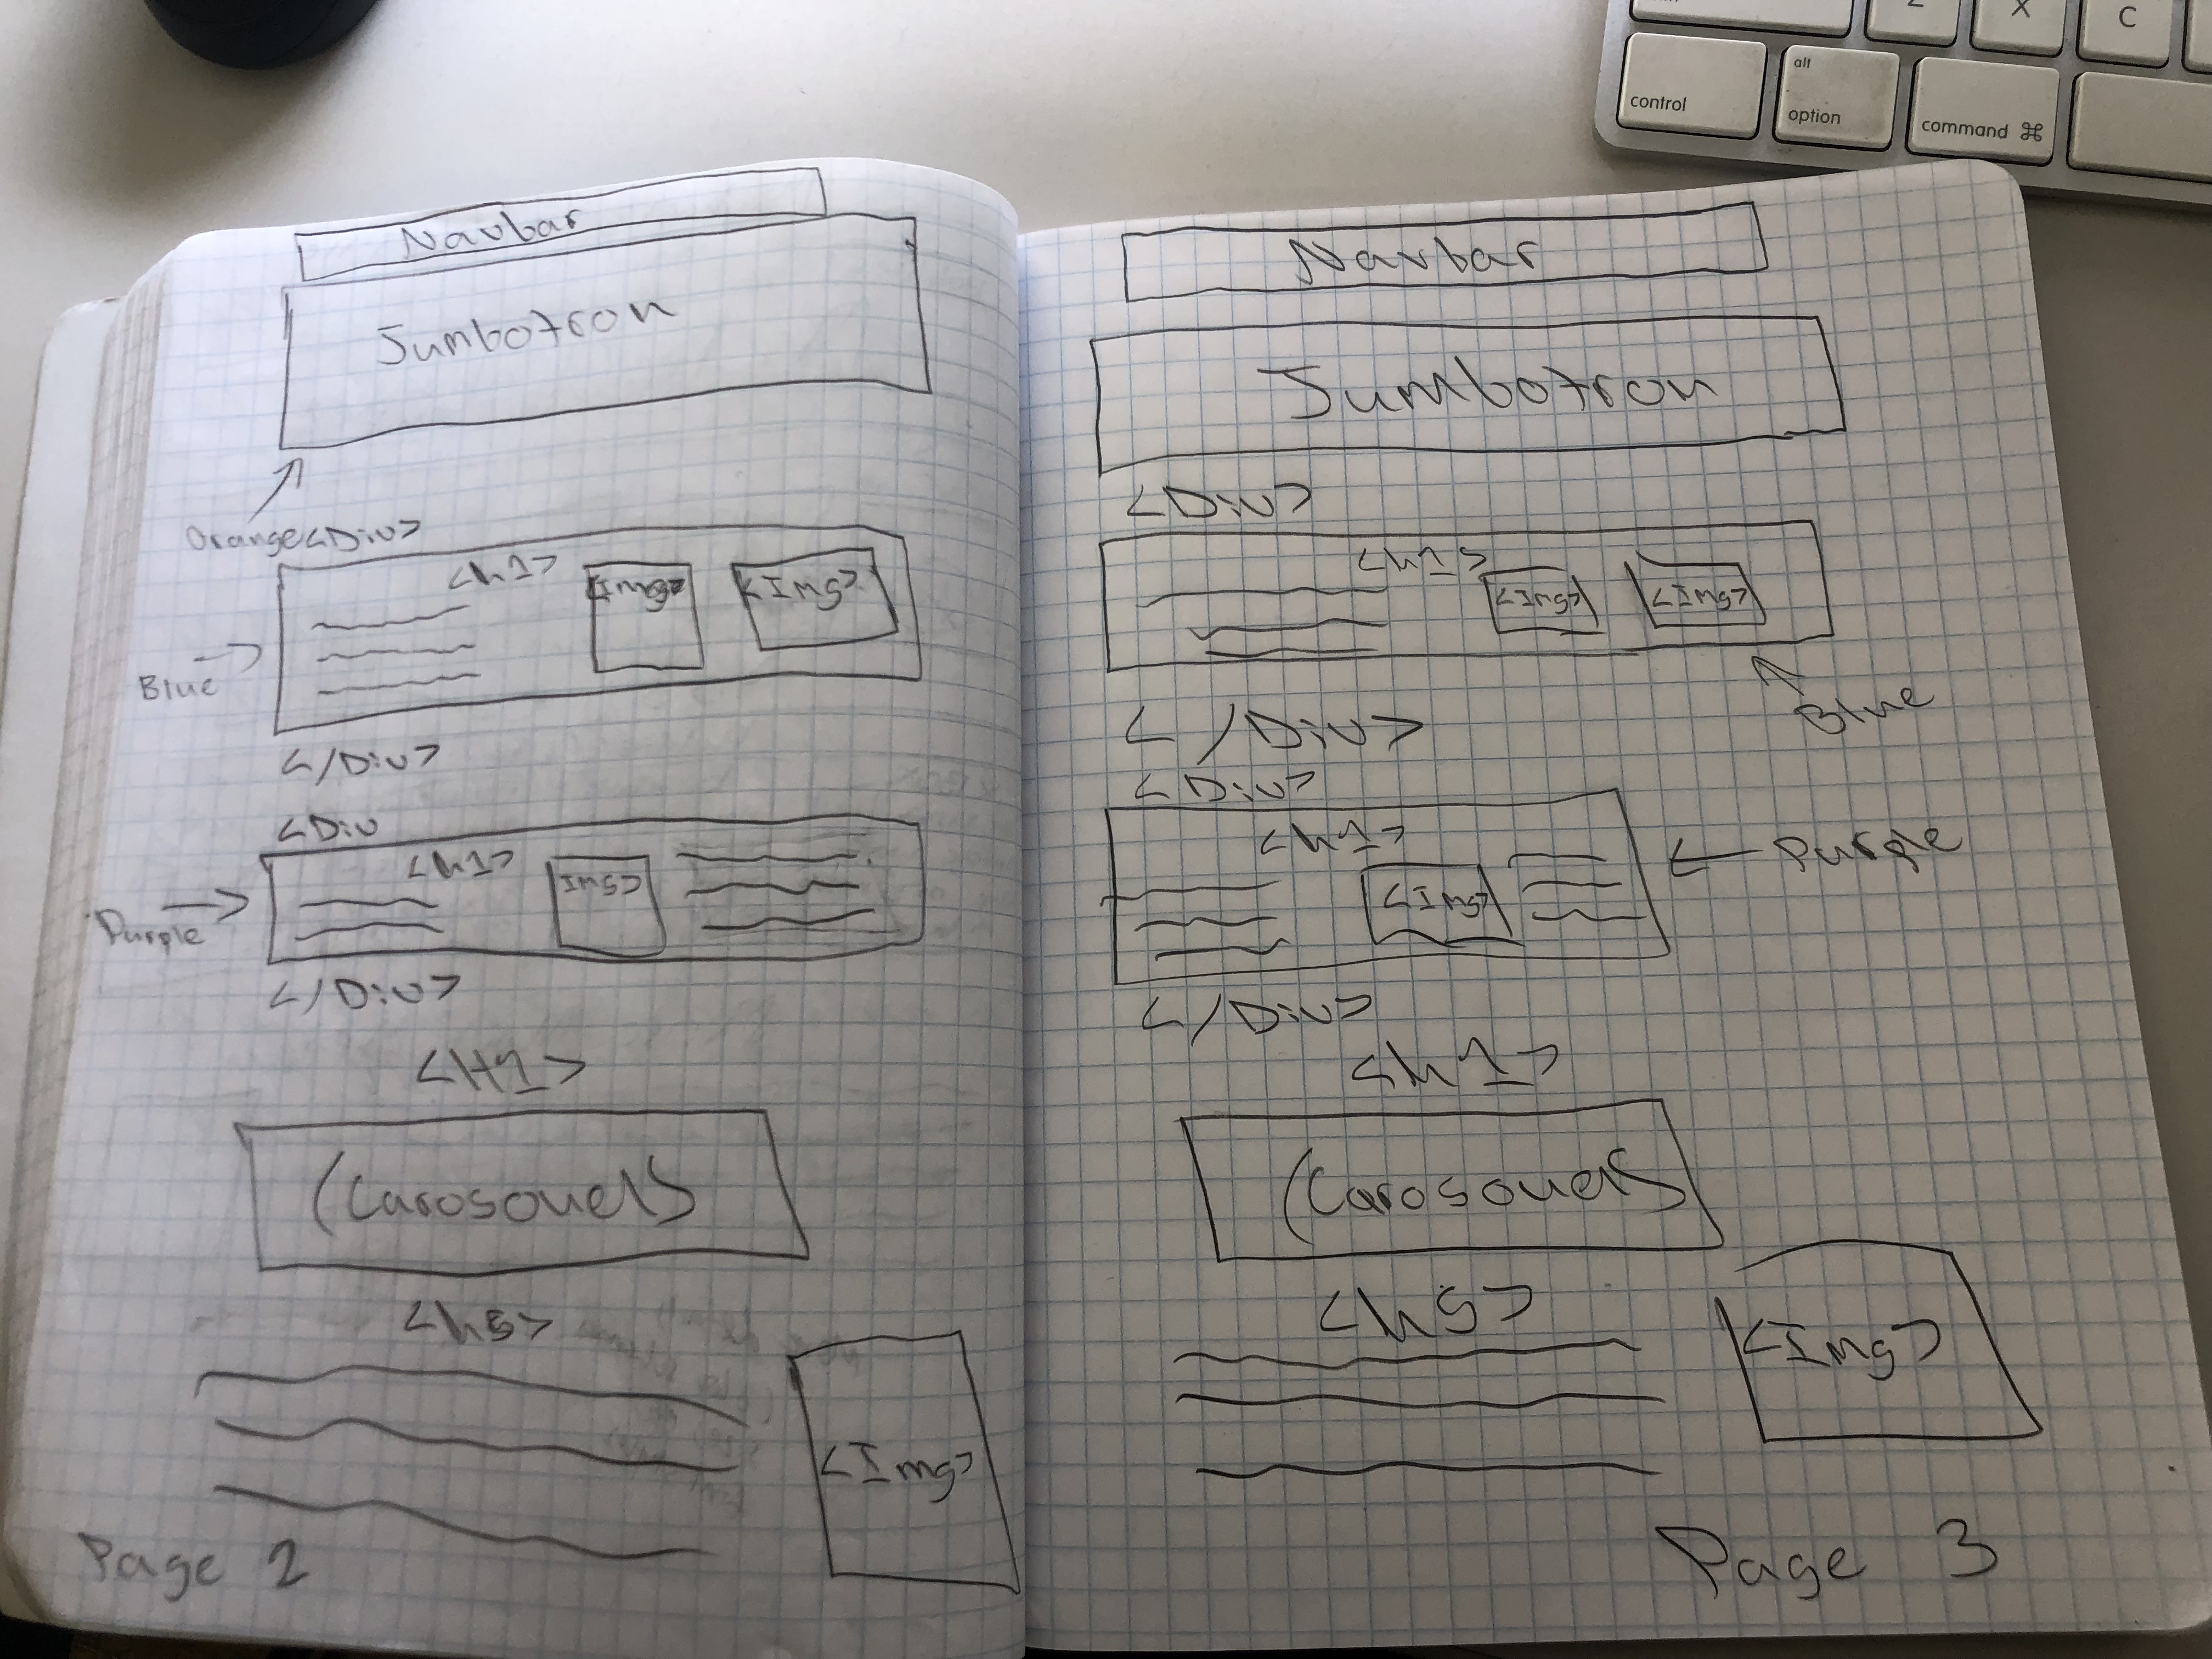 Z
X
C
control
alt
option
command ⌘
Navbar
Jumbotron
Orange <Div>
<h1>
<Img>
<Img>
Blue
</Div>
<Div
<h1>
Img>
Purple
</Div>
<H1>
(Carosouel)
<h5>
<Img>
Page 2
Navbar
Jumbotron
<Div>
<h1>
<Img>
<Img>
Blue
</Div>
<Div>
<h1>
<Img>
Purple
</Div>
<h1>
(Carosouel)
<h5>
<Img>
Page 3